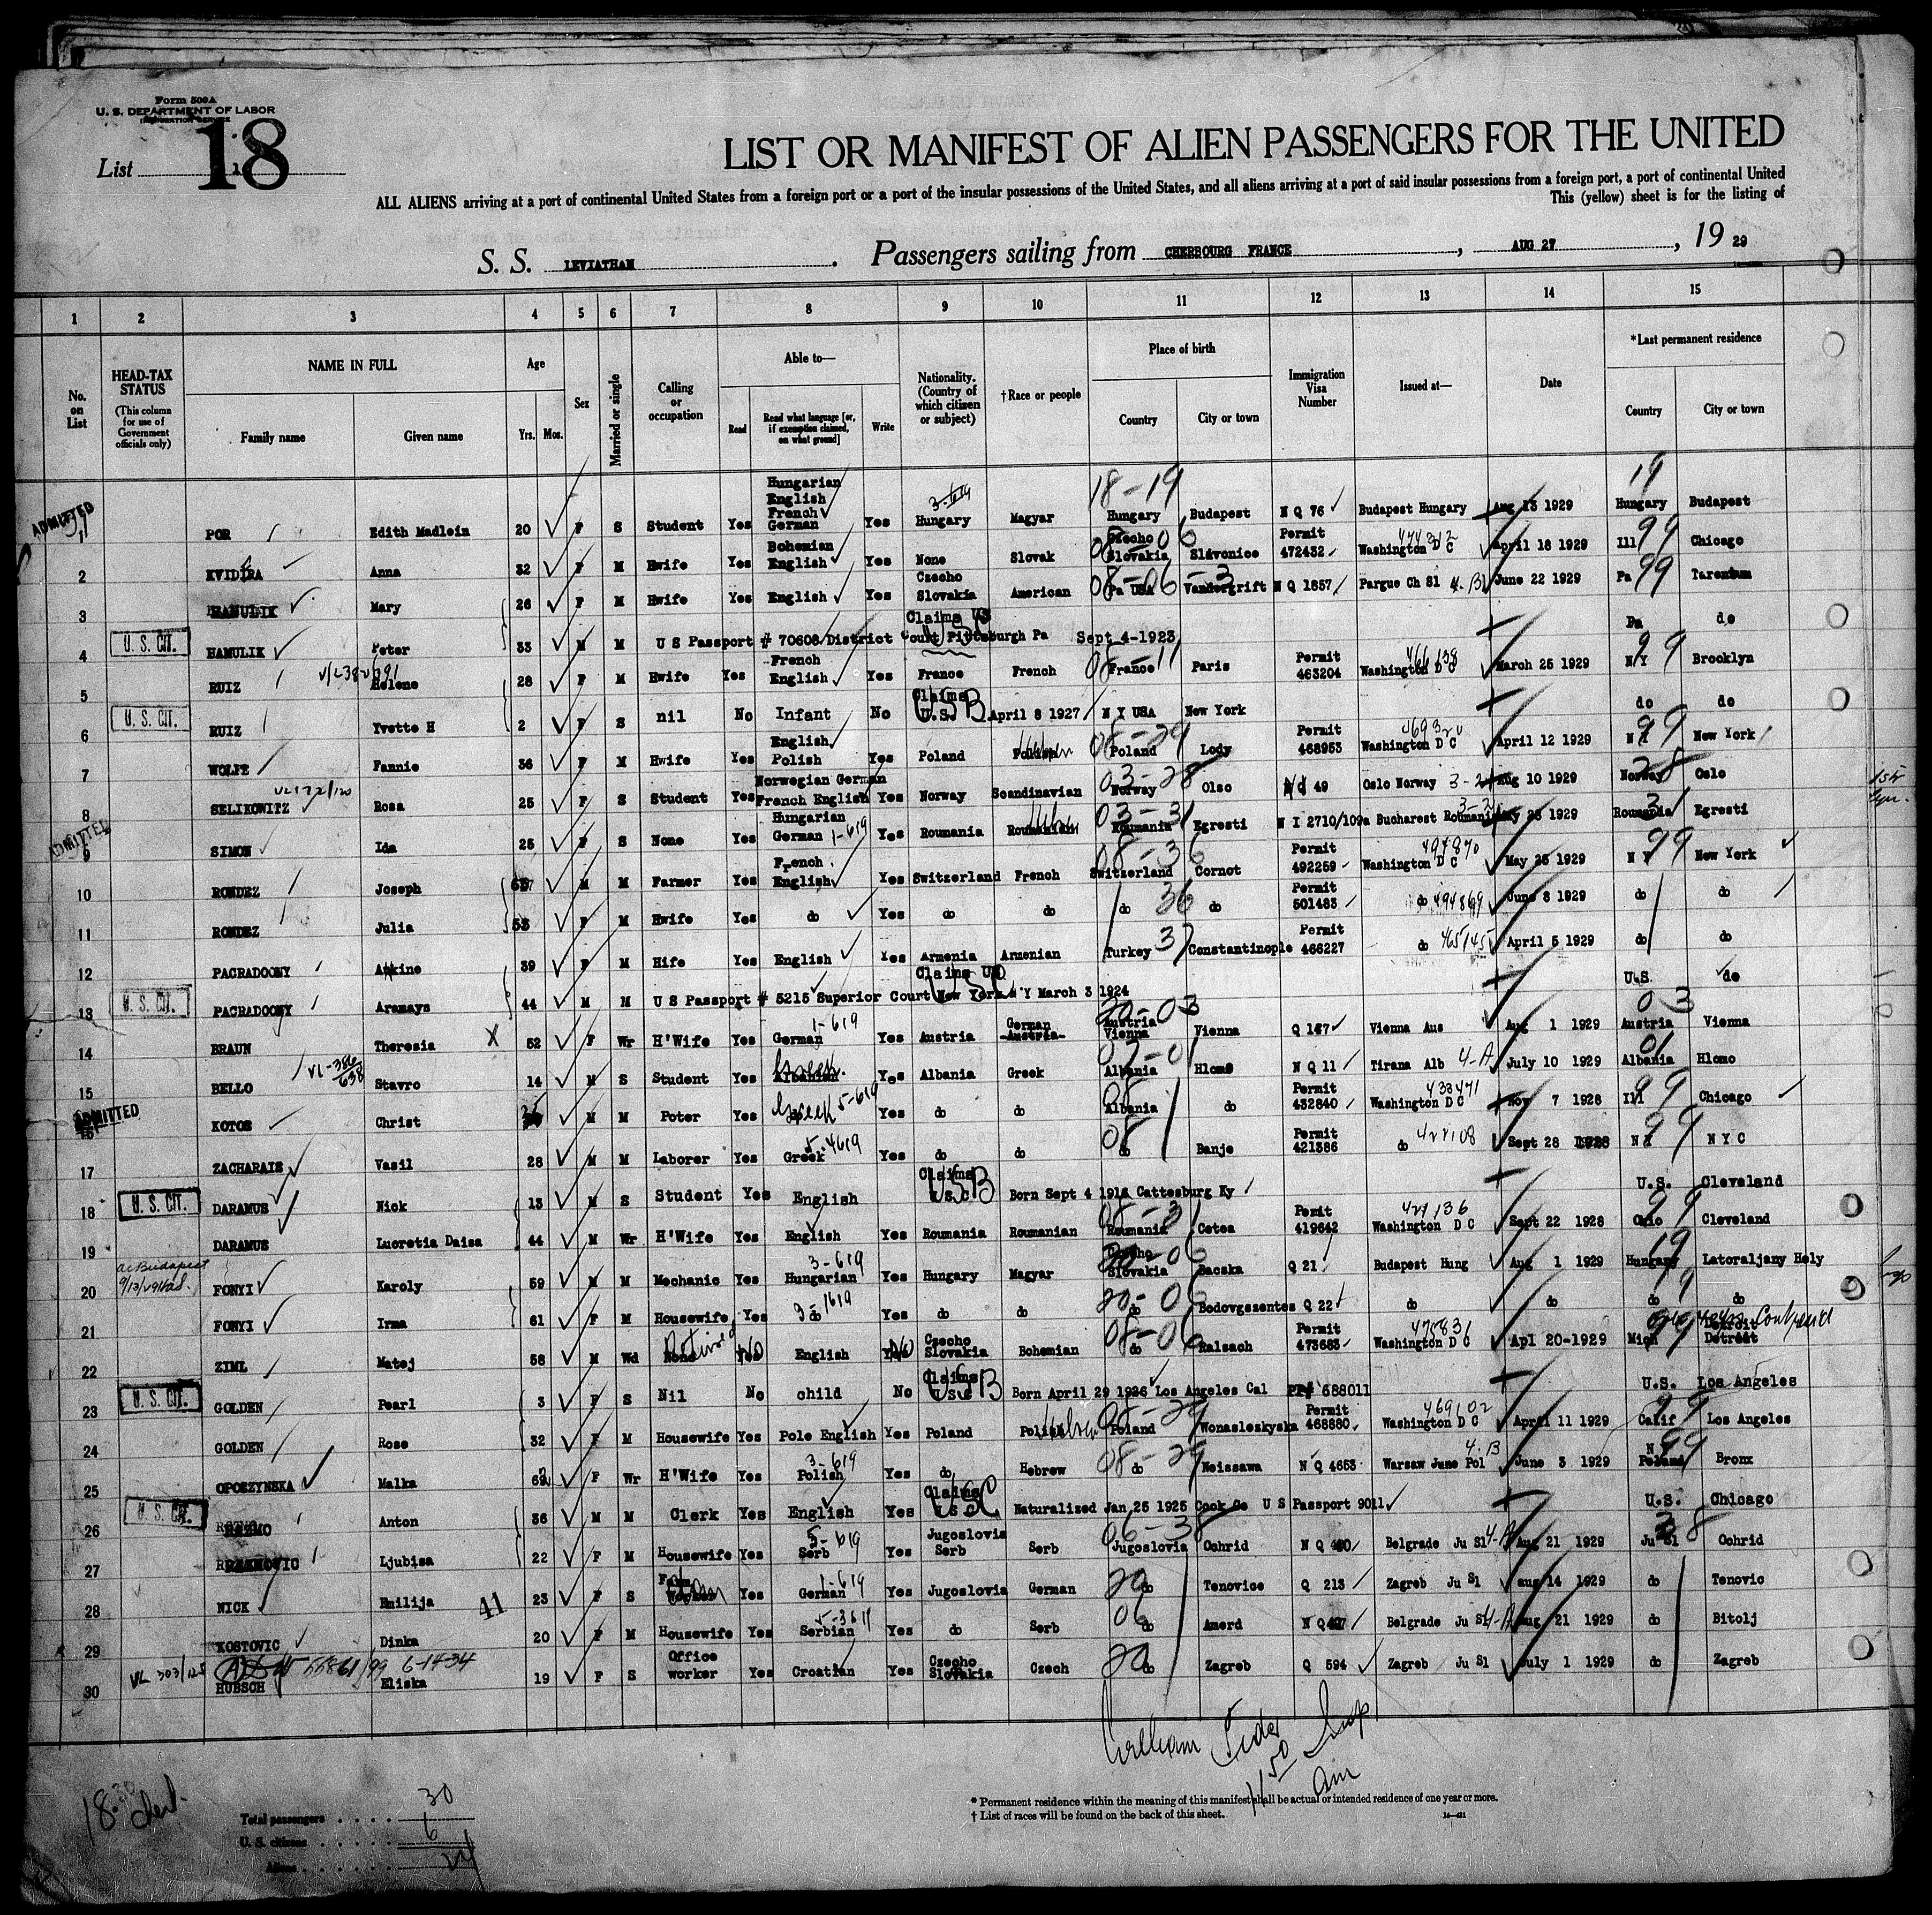 Form 500A
U. S. DEPARTMENT OF LABOR
IMMIGRATION SERVICE
List 18
LIST OR MANIFEST OF ALIEN PASSENGERS FOR THE UNITED
ALL ALIENS arriving at a port of continental United States from a foreign port or a port of the insular possessions of the United States, and all aliens arriving at a port of said insular possessions from a foreign port, a port of continental United
This (yellow) sheet is for the listing of
S. S. LEVIATHAN. Passengers sailing from CHERBOURG FRANCE, AUG 27, 19 29
1 2 3 4 5 6 7 8 9 10 11 12 13 14 15
No. on List
HEAD-TAX STATUS
(This column for use of Government officials only)
NAME IN FULL
Family name
Given name
Age
Yrs. Mos.
Sex
Married or single
Calling or occupation
Able to—
Read
Read what language [or, if exemption claimed, on what ground]
Write
Nationality. (Country of which citizen or subject)
†Race or people
Place of birth
Country
City or town
Immigration Visa Number
Issued at—
Date
*Last permanent residence
Country
City or town
ADMITTED
1 POR Edith Madlein 20 F S Student Yes Hungarian English French German Yes Hungary Magyar 18-19 Hungary Budapest N Q 76 Budapest Hungary Aug 13 1929 19 Hungary Budapest
2 Anna 32 F M Hwife Yes Bohemian English Yes None Slovak Czecho Slovakia 08-06 Slavonice Permit 472432 Washington D C April 16 1929 Ill 99 Chicago
3 HAMULIK Mary 26 F M Hwife Yes English Yes Czecho Slovakia American 08-06 Pa USA Vandergrift N Q 1857 Pargue Ch Sl June 22 1929 Pa 99 Tarentum
4 U. S. CIT. HAMULIK Peter 33 M M U S Passport # 70608 District Court Pittsburgh Pa Sept 4-1923 Claims US Pa do
5 RUIZ Helene 28 F M Hwife Yes French English Yes France French 08-11 France Paris Permit 463204 Washington D C March 25 1929 N Y 99 Brooklyn
6 U. S. CIT. RUIZ Yvette H 2 F S nil No Infant No Claims U.S. USB April 8 1927 N Y USA New York do do
7 WOLFE Fannie 36 F M Hwife Yes English Polish Yes Poland 08-29 Poland Lody Permit 468953 Washington D C April 12 1929 N Y 99 New York
8 SELIKOWITZ Rosa 25 F S Student Yes Norwegian German French English Yes Norway Scandinavian 03-28 Norway Olso 49 Oslo Norway Aug 10 1929 Norway 28 Oslo
ADMITTED
9 SIMON Ida 25 F S None Yes Hungarian German 1-619 Yes Roumania Roumanian 03-31 Roumania Egresti N I 2710/109a Bucharest Roumania May 28 1929 Roumania Egresti
10 RONDEZ Joseph M M Farmer Yes French English Yes Switzerland French 08-36 Switzerland Cornot Permit 492259 494870 Washington D C May 25 1929 N Y 99 New York
11 RONDEZ Julia 53 F M Hwife Yes do Yes do do do 36 do Permit 501483 do 494869 June 8 1929 do do
12 PACRADOONY 39 F M Hife Yes English Yes Armenia Armenian Turkey 37 Constantinople Permit 466227 do 465145 April 5 1929 do do
13 U. S. CIT. PACRADOONY Aramays 44 M M U S Passport # 5215 Superior Court New York N Y March 3 1924 Claims US U.S. do
14 BRAUN Theresia X 52 F Wr H'Wife Yes German 1-619 Yes Austria German Austria 20-03 Austria Vienna Vienna Q 167 Vienna Aus Aug 1 1929 03 Austria Vienna
15 BELLO VL-386/638 Stavro 14 M S Student Yes Albanian Greek Yes Albania Greek Albania Hlomo N Q 11 Tirana Alb 4-A July 10 1929 01 Albania Hlomo
ADMITTED
16 KOTOS Christ M M Poter Yes Greek 5-619 Yes do do 08 Albania do Permit 432840 433471 Washington D C Nov 7 1928 Ill 99 Chicago
17 ZACHARAIS Vasil 28 M M Laborer Yes Greek 5-4619 Yes do do 08 do Banje Permit 421386 do 422108 Sept 28 1928 N Y 99 N Y C
18 U. S. CIT. DARAMUS Nick 13 M S Student Yes English Claims U.S.C USB Born Sept 4 1916 Cattesburg Ky U.S. Cleveland
19 DARAMUS Lucretia Daisa 44 M Wr H'Wife Yes English Yes Roumania Roumanian 08-31 Roumania Cetea Pemit 419642 421136 Washington D C Sept 22 1928 Ohio 99 Cleveland
20 FONYI Karoly 59 M M Mechanic Yes 3-619 Hungarian Yes Hungary Magyar Czecho Slovakia 20-06 Bacska Q 21 Budapest Hung Aug 1 1929 19 Hungary Latoraljany Hely
21 FONYI Irma 61 F M Housewife Yes do Yes do do 20-06 do Bodovgszentes Q 22 do do do do
22 ZIML Matej 58 M Wd None Retired English Czecho Slovakia Bohemian 08-06 do Ralsach Permit 473683 475831 Washington D C Apl 20-1929 Mich 99 Detroit
23 U. S. CIT. GOLDEN Pearl 3 F S Nil No child No Claims USC USB Born April 29 1926 Los Angeles Cal PP# 688011 U.S. Los Angeles
24 GOLDEN Rose 32 F M Housewife Yes Pole English Yes Poland Polish Hebrew 08-29 Poland Wonasleskyska Permit 468880 469102 Washington D C April 11 1929 Calif 99 Los Angeles
25 OPOSZYNSKA Malka F Wr H'Wife Yes 3-619 Polish Yes do Hebrew 08-29 do Neissawa N Q 4653 Warsaw June Pol 4-B June 3 1929 N Y 99 Poland Bronx
26 U. S. CIT. Anton 36 M M Clerk Yes English Yes Claims USC Naturalized Jan 25 1925 Cook Co U S Passport 9011 U.S. Chicago
27 Ljubisa 22 F M Housewife Yes 5-619 Serb Yes Jugoslovia Serb Serb 06-38 Jugoslovia Ochrid N Q Belgrade Ju Sl 4-A Aug 21 1929 38 Ju Sl Ochrid
28 NICK Emilija 41 23 F S Farm Worker Yes German 1-619 Yes Jugoslovia German 20 do Tenovice Q 213 Zagreb Ju Sl aug 14 1929 do Tenovic
29 KOSTOVIC Dinka 20 F M Housewife Yes Serbian Yes do Serb 06 do Amerd N Q Belgrade Ju Sl 4-A Aug 21 1929 do Bitolj
30 VL 303/125 HUBSCH 6-14-34 Eliska 19 F S Office worker Yes Croatian Yes Czecho Slovakia Czech 20 do Zagreb Q 594 Zagreb Ju Sl July 1 1929 do Zagreb
William
11 50 am
* Permanent residence within the meaning of this manifest shall be actual or intended residence of one year or more.
† List of races will be found on the back of this sheet.
Total passengers 30
U. S. citizens 6
Aliens 24